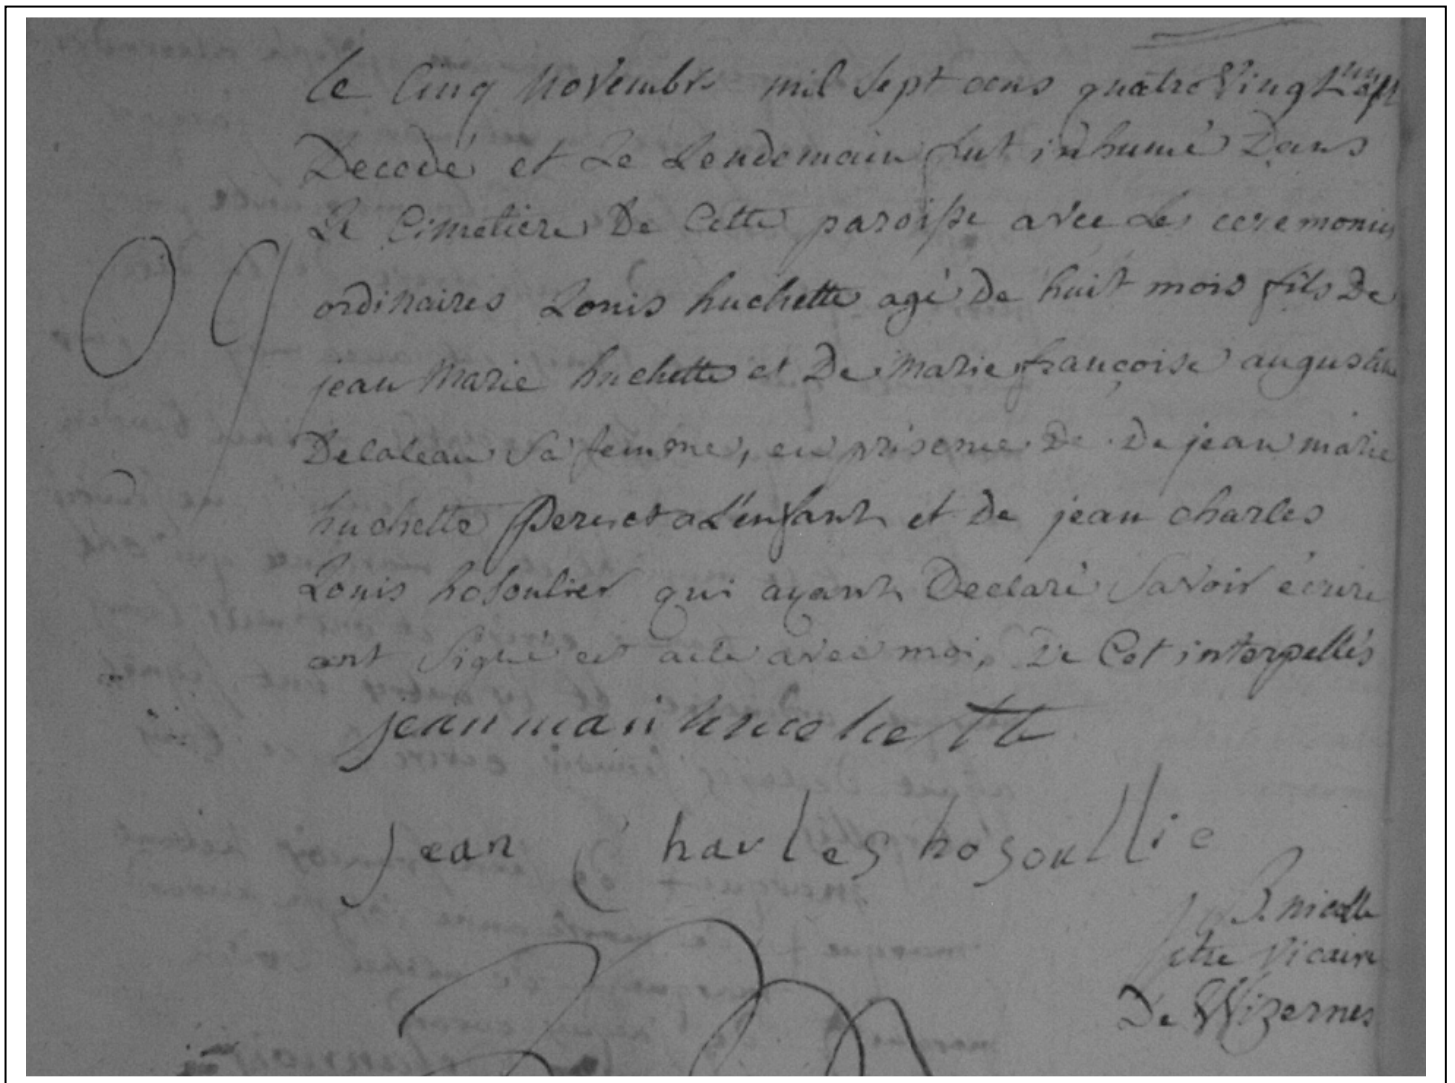 le Cinq Novembre mil sept cens quatre Vingt
Decedé et Le Lendemain fut inhumé Dans
Le Cimetiere De Cette paroisse avec Les ceremonies
ordinaires Louis huchette agé De huit mois fils De
jean Marie huchette et De Marie françoise augustine
Delaleau Sa femme, en presence De De jean marie
huchette Pere de L'enfant et de jean charles
Louis hosoulier qui ayant Declaré Savoir écrire
ont Signé cet acte avec moi, De Cet interpellés
jean mari huchette
jean Charles hosoullie
nicolle
ptre vicaire
De Wizernes